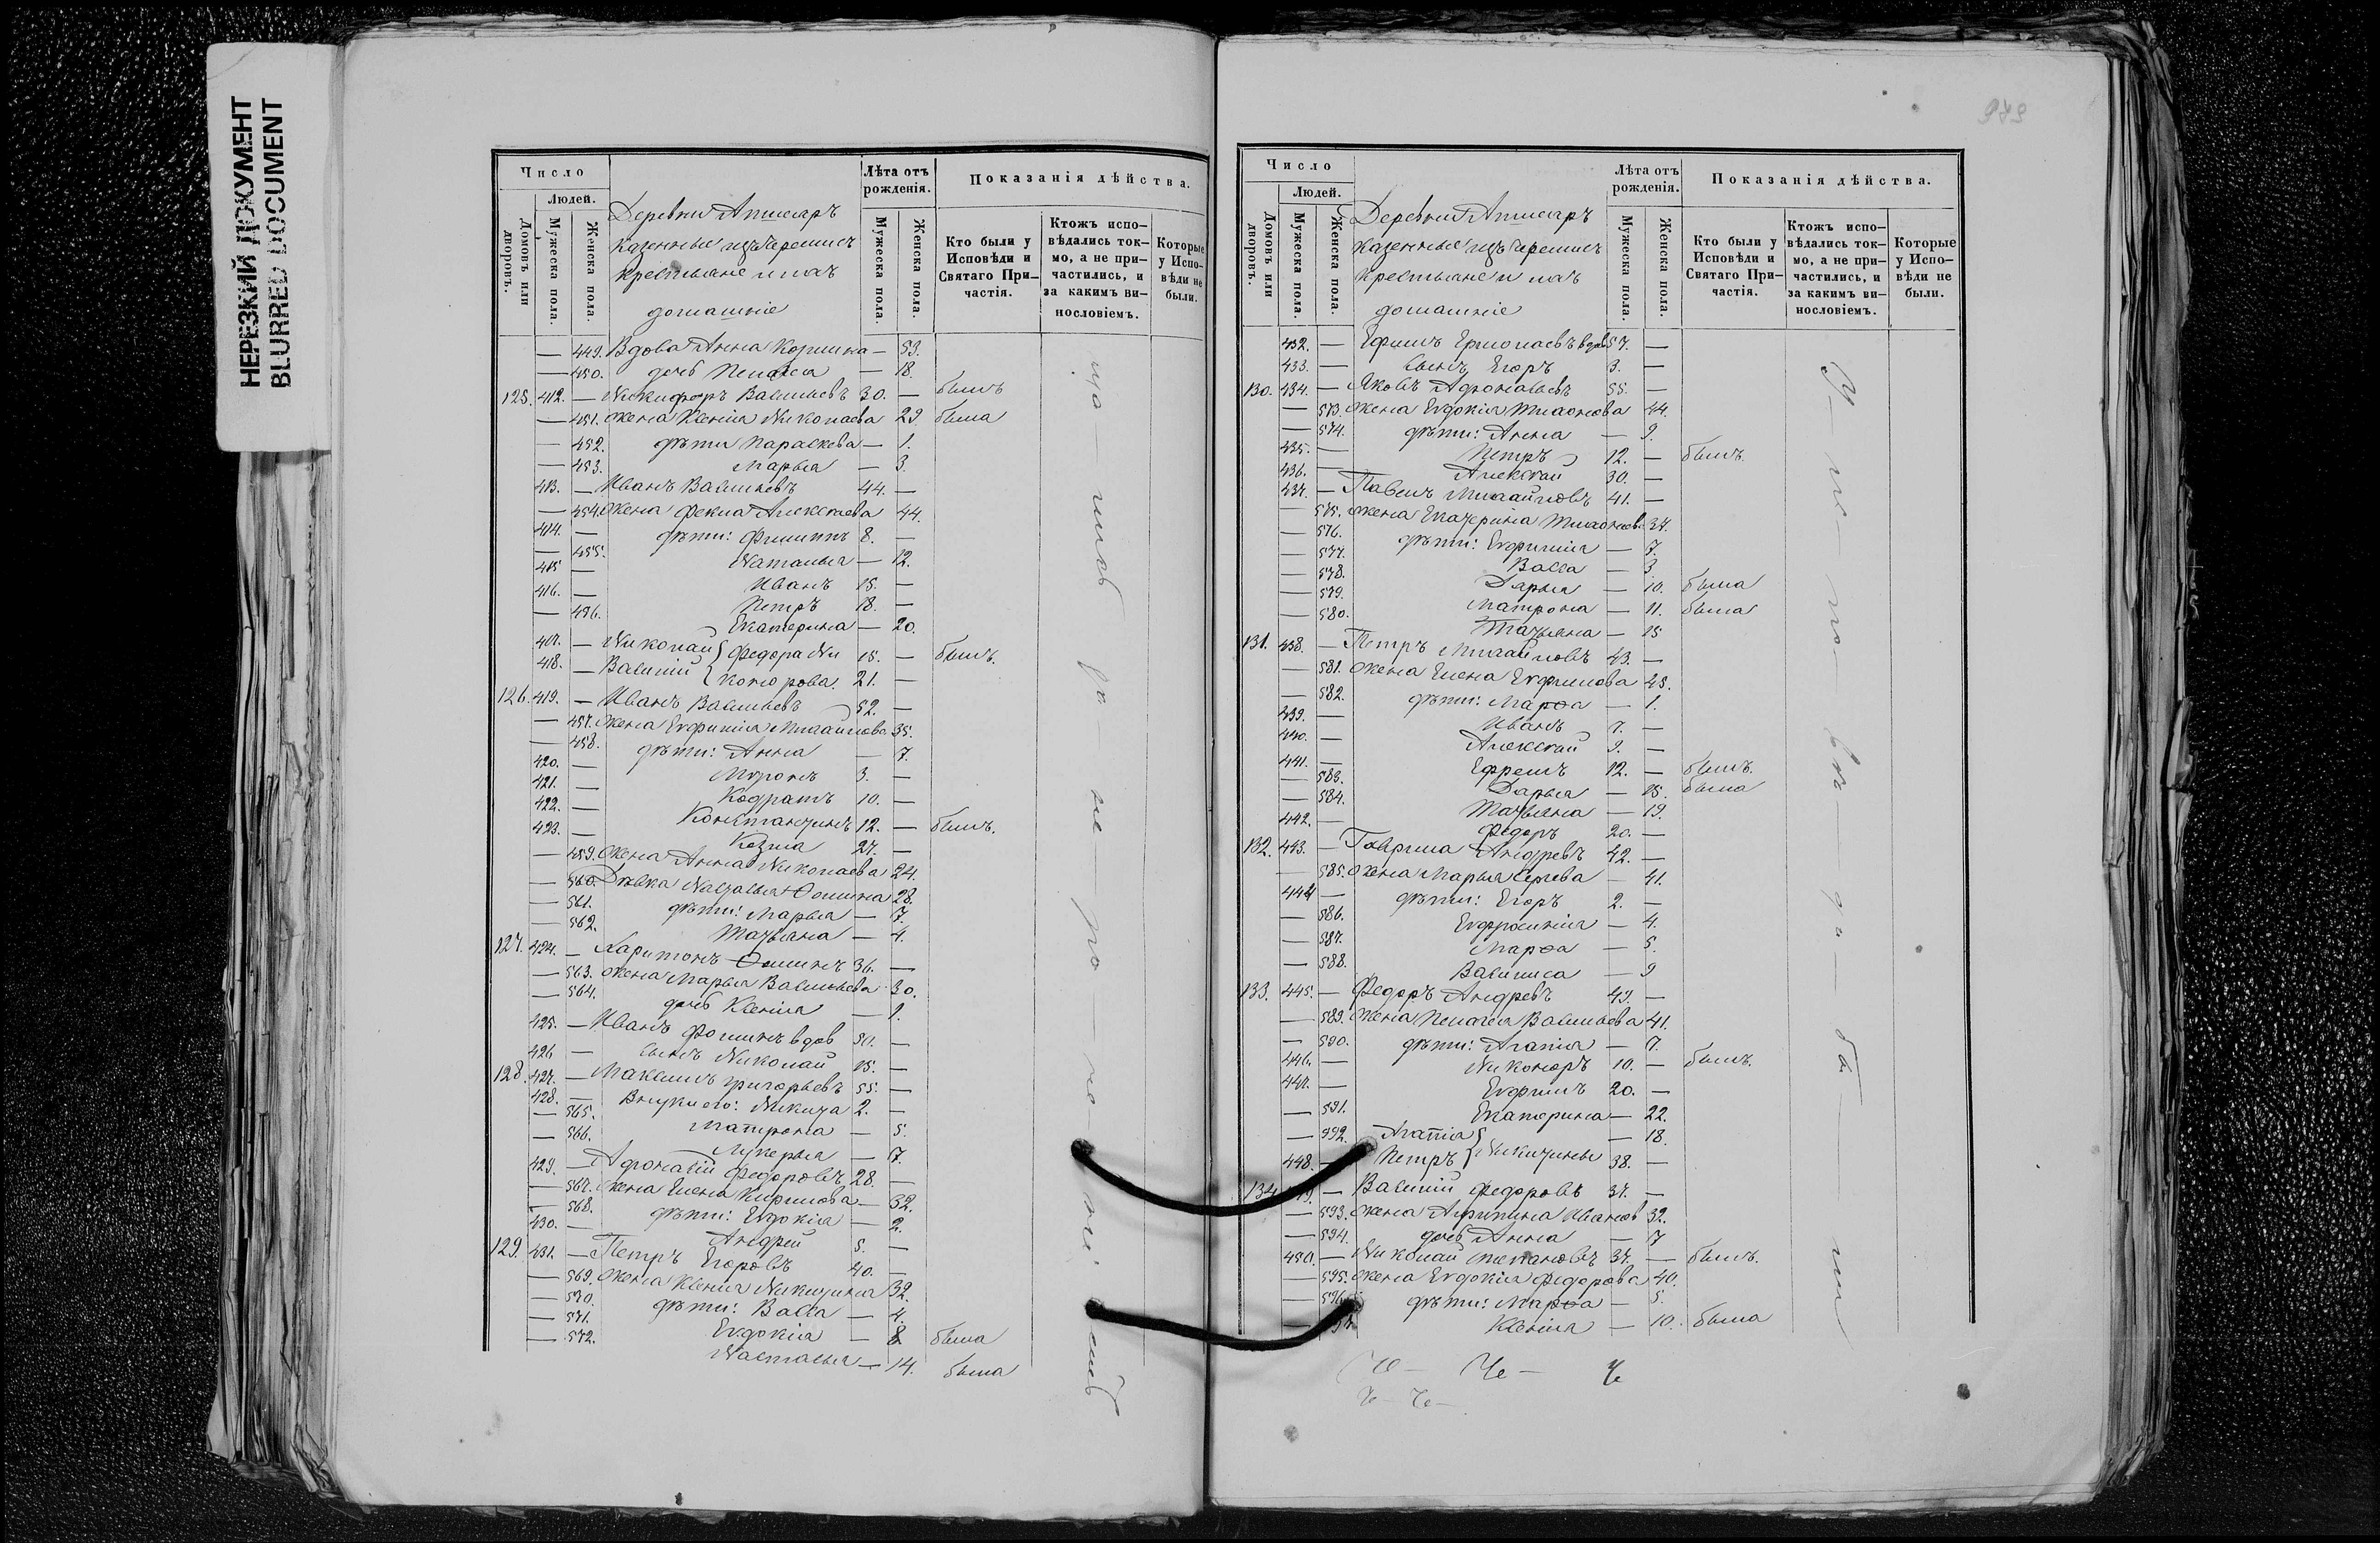 НЕРЕЗКИЙ ДОКУМЕНТ
BLURRED DOCUMENT
Число
Людей.
Домовъ или дворовъ.
Мужеска пола.
Женска пола.
Деревни
казенные изъ черемисъ
крестьяне и ихъ
домашніе
Лѣта отъ рожденія.
Мужеска пола.
Женска пола.
Показанія дѣйства.
Кто были у Исповѣди и Святаго При-частія.
Ктожъ испо-вѣдались ток-мо, а не при-частились, и за какимъ ви-нословіемъ.
Которые у Испо-вѣди не были.
— 449. Вдова Анна Козмина — 53.
— 450. дочь Пелагея — 18.
125. 412. — Никифоръ Васильевъ 30. — былъ
— 451. жена Ксенія Николаева 29 была
— 452. дѣти Параскева — 1.
— 453. Марья — 3.
413. — Иванъ Васильевъ 44. —
— 454. жена Фекла Алексѣева 44.
414. — дѣти: Филиппъ 8. —
— 455. Наталья — 12.
415 — Иванъ 15. —
416. — Петръ 18. —
— 456. Екатерина — 20.
417. — Николай Федора Ни 15. — былъ.
418. — Василій конорова. 21. —
126. 419. — Иванъ Васильевъ 52. —
— 457. жена Евфимія Михайлова 35.
— 458. дѣти: Анна — 7.
420. — Миронъ 3. —
421. — Кодратъ 10. —
422. — Константинъ 12. — былъ.
423. — Козма 27. —
— 459. жена Анна Николаева 24.
— 560. Дѣвка Наталья Ѳомина 28.
— 561. дѣти: Марья — 7.
— 562. Татьяна — 4.
127. 424. — Харитонъ Ѳоминъ 36. —
— 563. жена Марья Васильева 30.
— 564. дочь Ксенія — 1.
425. — Иванъ Фоминъ вдов 50. —
426 — сынъ Николай 15. —
128. 427. — Максимъ Григорьевъ 55. —
428. — Внуки его: Никита 2. —
— 565. Матрона — 5.
— 566. Лукерья — 7.
429. — Афонасій Федоровъ 28. —
— 567. жена Елена Кирилова — 32.
— 568. дѣти: Евдокія — 2.
430. — Андрей 5. —
129. 431. — Петръ Егоровъ 40. —
— 569. жена Ксенія Никитина 32.
— 570. дѣти: Васса — 4.
— 571. Евдокія — 8 была
— 572. Настасья — 14. была
979
Число
Людей.
Домовъ или дворовъ.
Мужеска пола.
Женска пола.
Деревни
казенные изъ черемисъ
крестьяне и ихъ
домашніе
Лѣта отъ рожденія.
Мужеска пола.
Женска пола.
Показанія дѣйства.
Кто были у Исповѣди и Святаго При-частія.
Ктожъ испо-вѣдались ток-мо, а не при-частились, и за какимъ ви-нословіемъ.
Которые у Испо-вѣди не были.
432. — Ефимъ Ермолаевъ вдов 57. —
433. — сынъ Егоръ 3. —
130. 434. — Яковъ Афонасьевъ 55. —
— 573. жена Евдокія Тихонова 44.
— 574. дѣти: Анна — 9.
435. — Петръ 12. — былъ.
436. — Алексѣй 30. —
437. — Павелъ Михайловъ 41. —
— 575. жена Екатерина Тихонов. 37.
— 576. дѣти: Евфимія — 7.
— 577. Васса — 3
— 578. Дарья — 10. была
— 579. Матрона — 11. была
— 580. Татьяна — 15
131. 438. — Петръ Михайловъ 43. —
— 581. жена Елена Евфимова 45.
— 582. дѣти: Марѳа — 1.
439. — Иванъ 7. —
440. — Алексѣй 9. —
441. — Ефремъ 12. — былъ.
— 583. Дарья — 15. была
— 584. Татьяна — 19.
442. — Федоръ 20. —
132. 443. — Гаврила Андревъ 42. —
— 585. жена Марья Сергева — 41.
444 — дѣти: Егоръ 2. —
— 586. Евфросинія — 4.
— 587. Марѳа — 5.
— 588. Василиса — 9
133. 445. — Федоръ Андревъ 49. —
— 589. жена Пелагея Васильева 41.
— 590. дѣти: Агапія — 7.
446. — Никоноръ 10. — былъ.
447. — Евфимъ 20. —
— 591. Екатерина — 22.
— 592. Агапія — 18.
448. — Петръ Никитины 38. —
134 — Василій Федоровъ 37. —
— 593. жена Агрипина Иванов 32.
— 594. дочь Анна — 7
450. — Николай Степановъ 37. — былъ.
— 595. жена Евдокія Федорова 40.
— дѣти: Марѳа — 5.
— Ксенія — 10. была